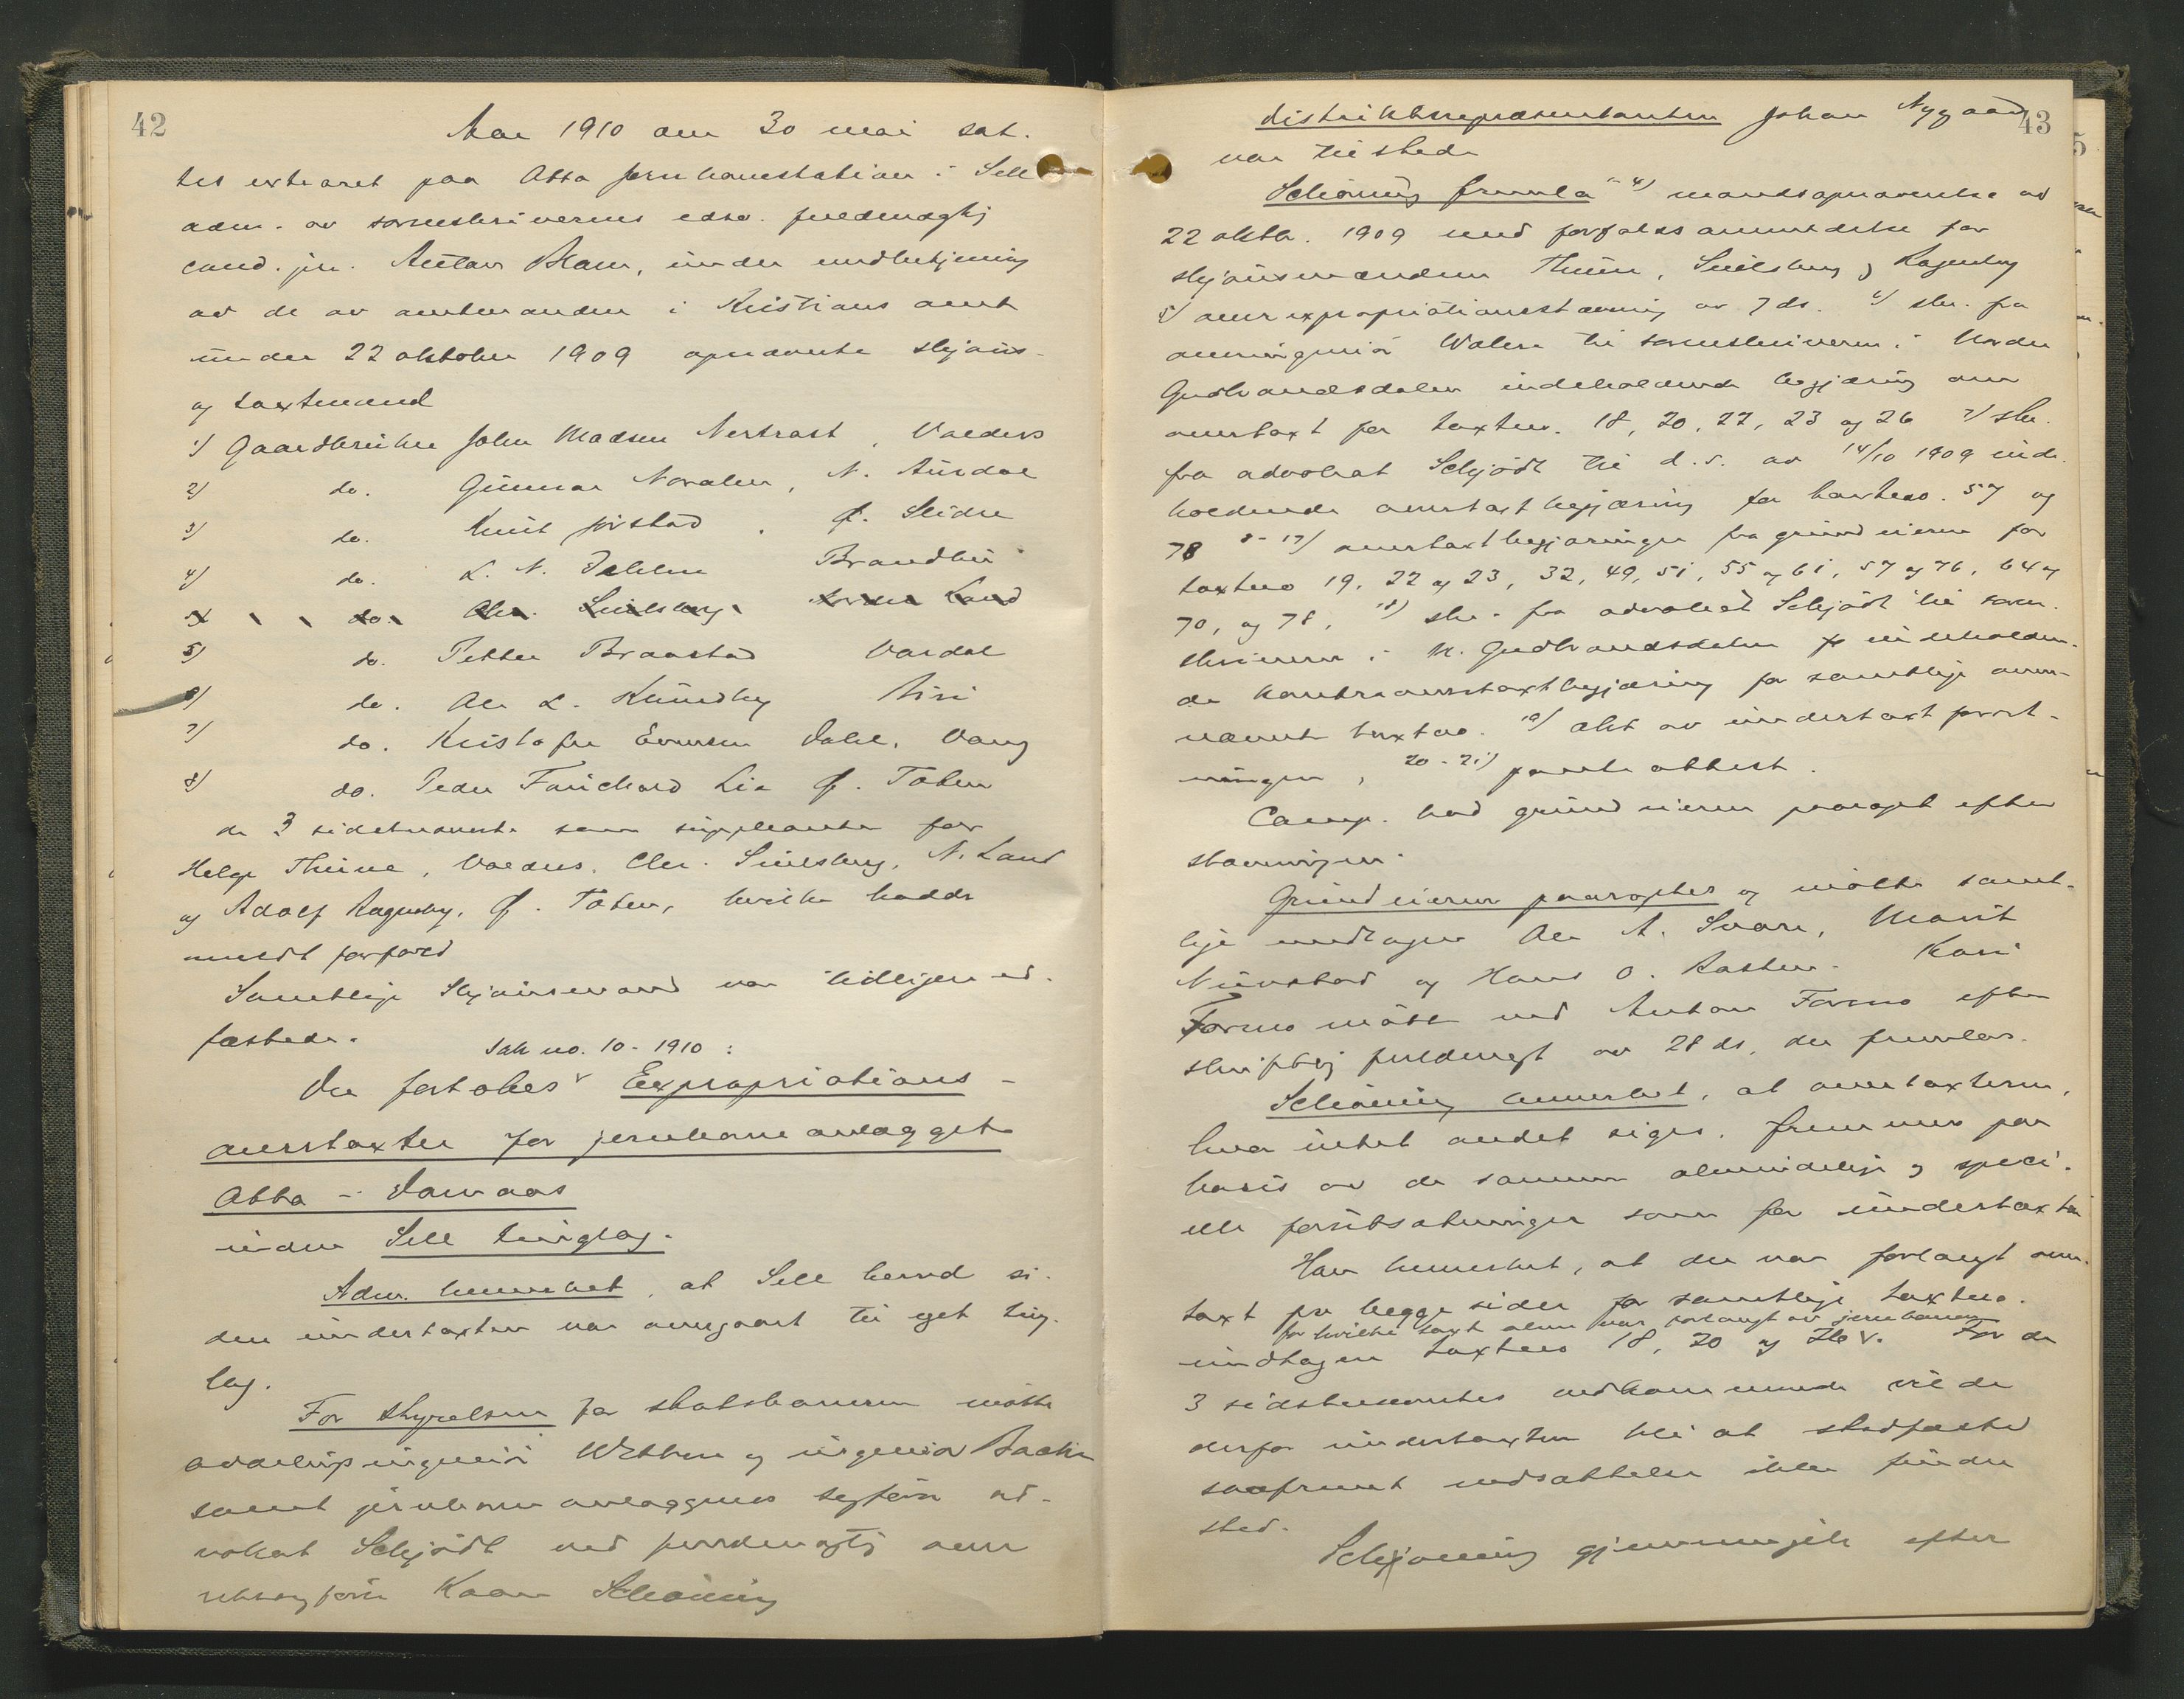 42
Aar 1910 den 30 mai sat-
tes extraret paa Otta jernbanestation i Sell
adm. av sorenskriverens edsv. fuldmægtig
cand. jur. Anton Blom, under medbetjening
av de av amtmanden i Kristians amt
under 22 oktober 1909 opnævnte skjøns-
og taxtmænd
1) Gaardbruker John Madsen Nertrøst, Valders
2) do. Gunnar Noraker, N. Aurdal
3) do. Knut Jøvstad, Ø. Slidre
4) do. L. N. Brandbu
do. Chr. Smedsberg Nordre Land
5) do. Petter Braastad Vardal
6) do. Ole L. Biri
7) do. Kristofer Evensen Dahl, Vang
8) do. Peder Fauchald Lie Ø. Toten
de 3 sidstnævnte som suppleanter for
Helge Thune, Valders, Chr. Smedsberg, N. Land
og Adolf Rogneby, Ø. Toten, hvilke hadde
meldt forfald
Samtlige skjønsmænd var tidligere ed-
fæstede.
Sak no. 10 - 1910:
Der foretokes Expropriations-
overtaxter for jernbaneanlægget
Otta - Domaas
inden Sell tinglag.
Adm. bemerket, at Sell herred si-
den undertaxten var overgaaet til eget ting-
lag.
For styrelsen for statsbanerne møtte
avdelingsingeniør og ingeniør Bache
samt jernbaneanlæggenes sagfører ad-
vokat Schjødt ved fuldmægtig over-
retssagfører Kaare Schiøning
43
distriktsrepræsentanten Johan Nygaard
var tilstede
Schiøning fremla 4) mandsopnævnelse av
22 oktbr. 1909 med forfaldsanmeldelse for
skjønsmændene Thune, Smedsberg og Rogneby
5) overexpropriationsstævning av 7 ds. 6) skr. fra
overingeniør til sorenskriveren i Nordre
Gudbrandsdalen indeholdende begjæring om
overtaxt for taxtno. 18, 20, 22, 23 og 26 7) skr.
fra advokat Schjødt til d. s. av 14/10 1909 inde-
holdende overtaxtbegjæring for taxtno. 57 og
78 8-17) overtaxtbegjæringer fra grundeierne for
taxtno 19, 22 og 23, 32, 49, 51, 55 og 61, 57 og 76, 64 og
70, og 78, 18) skr. fra advokat Schjødt til soren-
skriveren i N. Gudbrandsdalen indeholden-
de kontraovertaxtbegjæring for samtlige oven-
nævnte taxtno. 19) akt av undertaxtforret-
ningen, 20-21) panteattest.
Comp. bad grundeierne paaropt efter
stævningen.
Grundeierne paaroptes og møtte samt-
lige undtagen Ole A. Svare, Marit
og Hans O. Kari
Formo møtte ved Anton Formo efter
skriftlig fuldmagt av 28 ds. der fremlaes.
Schiøning bemerket, at overtaxterne,
hvor intet andet siges, fremmes paa
basis av de samme almindelige og speci-
elle forutsætninger som for undertaxten
Han bemerket, at der var forlangt over-
taxt fra begge sider for samtlige taxtno.
for hvilke taxt alene var forlangt av jernbanen
undtagen taxtno 18, 20 og 26. For de
3 sidstnævntes vedkommende vil de
derfor undertaxten bli at stadfæste
saafremt nedsættelse ikke finder
sted.
Schjøning gjennemgik efter